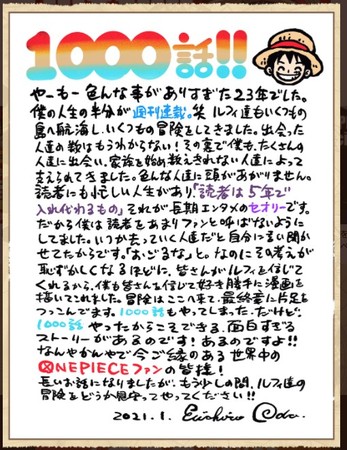 1000話!!
やーもー色んな事がありすぎた23年でした。
僕の人生の半分が週刊連載。笑 ルフィ達もいくつもの
島へ航海し、いくつもの冒険をしてきました。出会った
人達の数はもうわからない!その裏で僕も、たくさんの
人達に出会い、家族を始め数えきれない人達によって
支えられてきました。色んな人達に頭があがりません。
読者にも忙しい人生があり「読者は5年で
入れ代わるもの」それが長期エンタメのセオリーです。
だから僕は読者をあまりファンと呼ばないように
してました。いつか去っていく人達だと自分に言い聞か
せてたからです。「おごるな」と。なのにその考えが
恥ずかしくなるほどに、皆さんがルフィを信じて
くれるから、僕も皆さんを信じて好き勝手に漫画を
描いてこれました。冒険はここへ来て、最終章に片足を
つっこんでます。1000話もやってしまった…だけど…
1000話やったからこそできる、面白すぎる
ストーリーがあるのです!あるのですよ!!
なんやかんやで今ご縁のある世界中の
ONEPIECEファンの皆様!
長いお話になりましたが、もう少しの間、ルフィ達の
冒険をどうか見守ってやってください!!
2021.1. Eiichiro Oda.